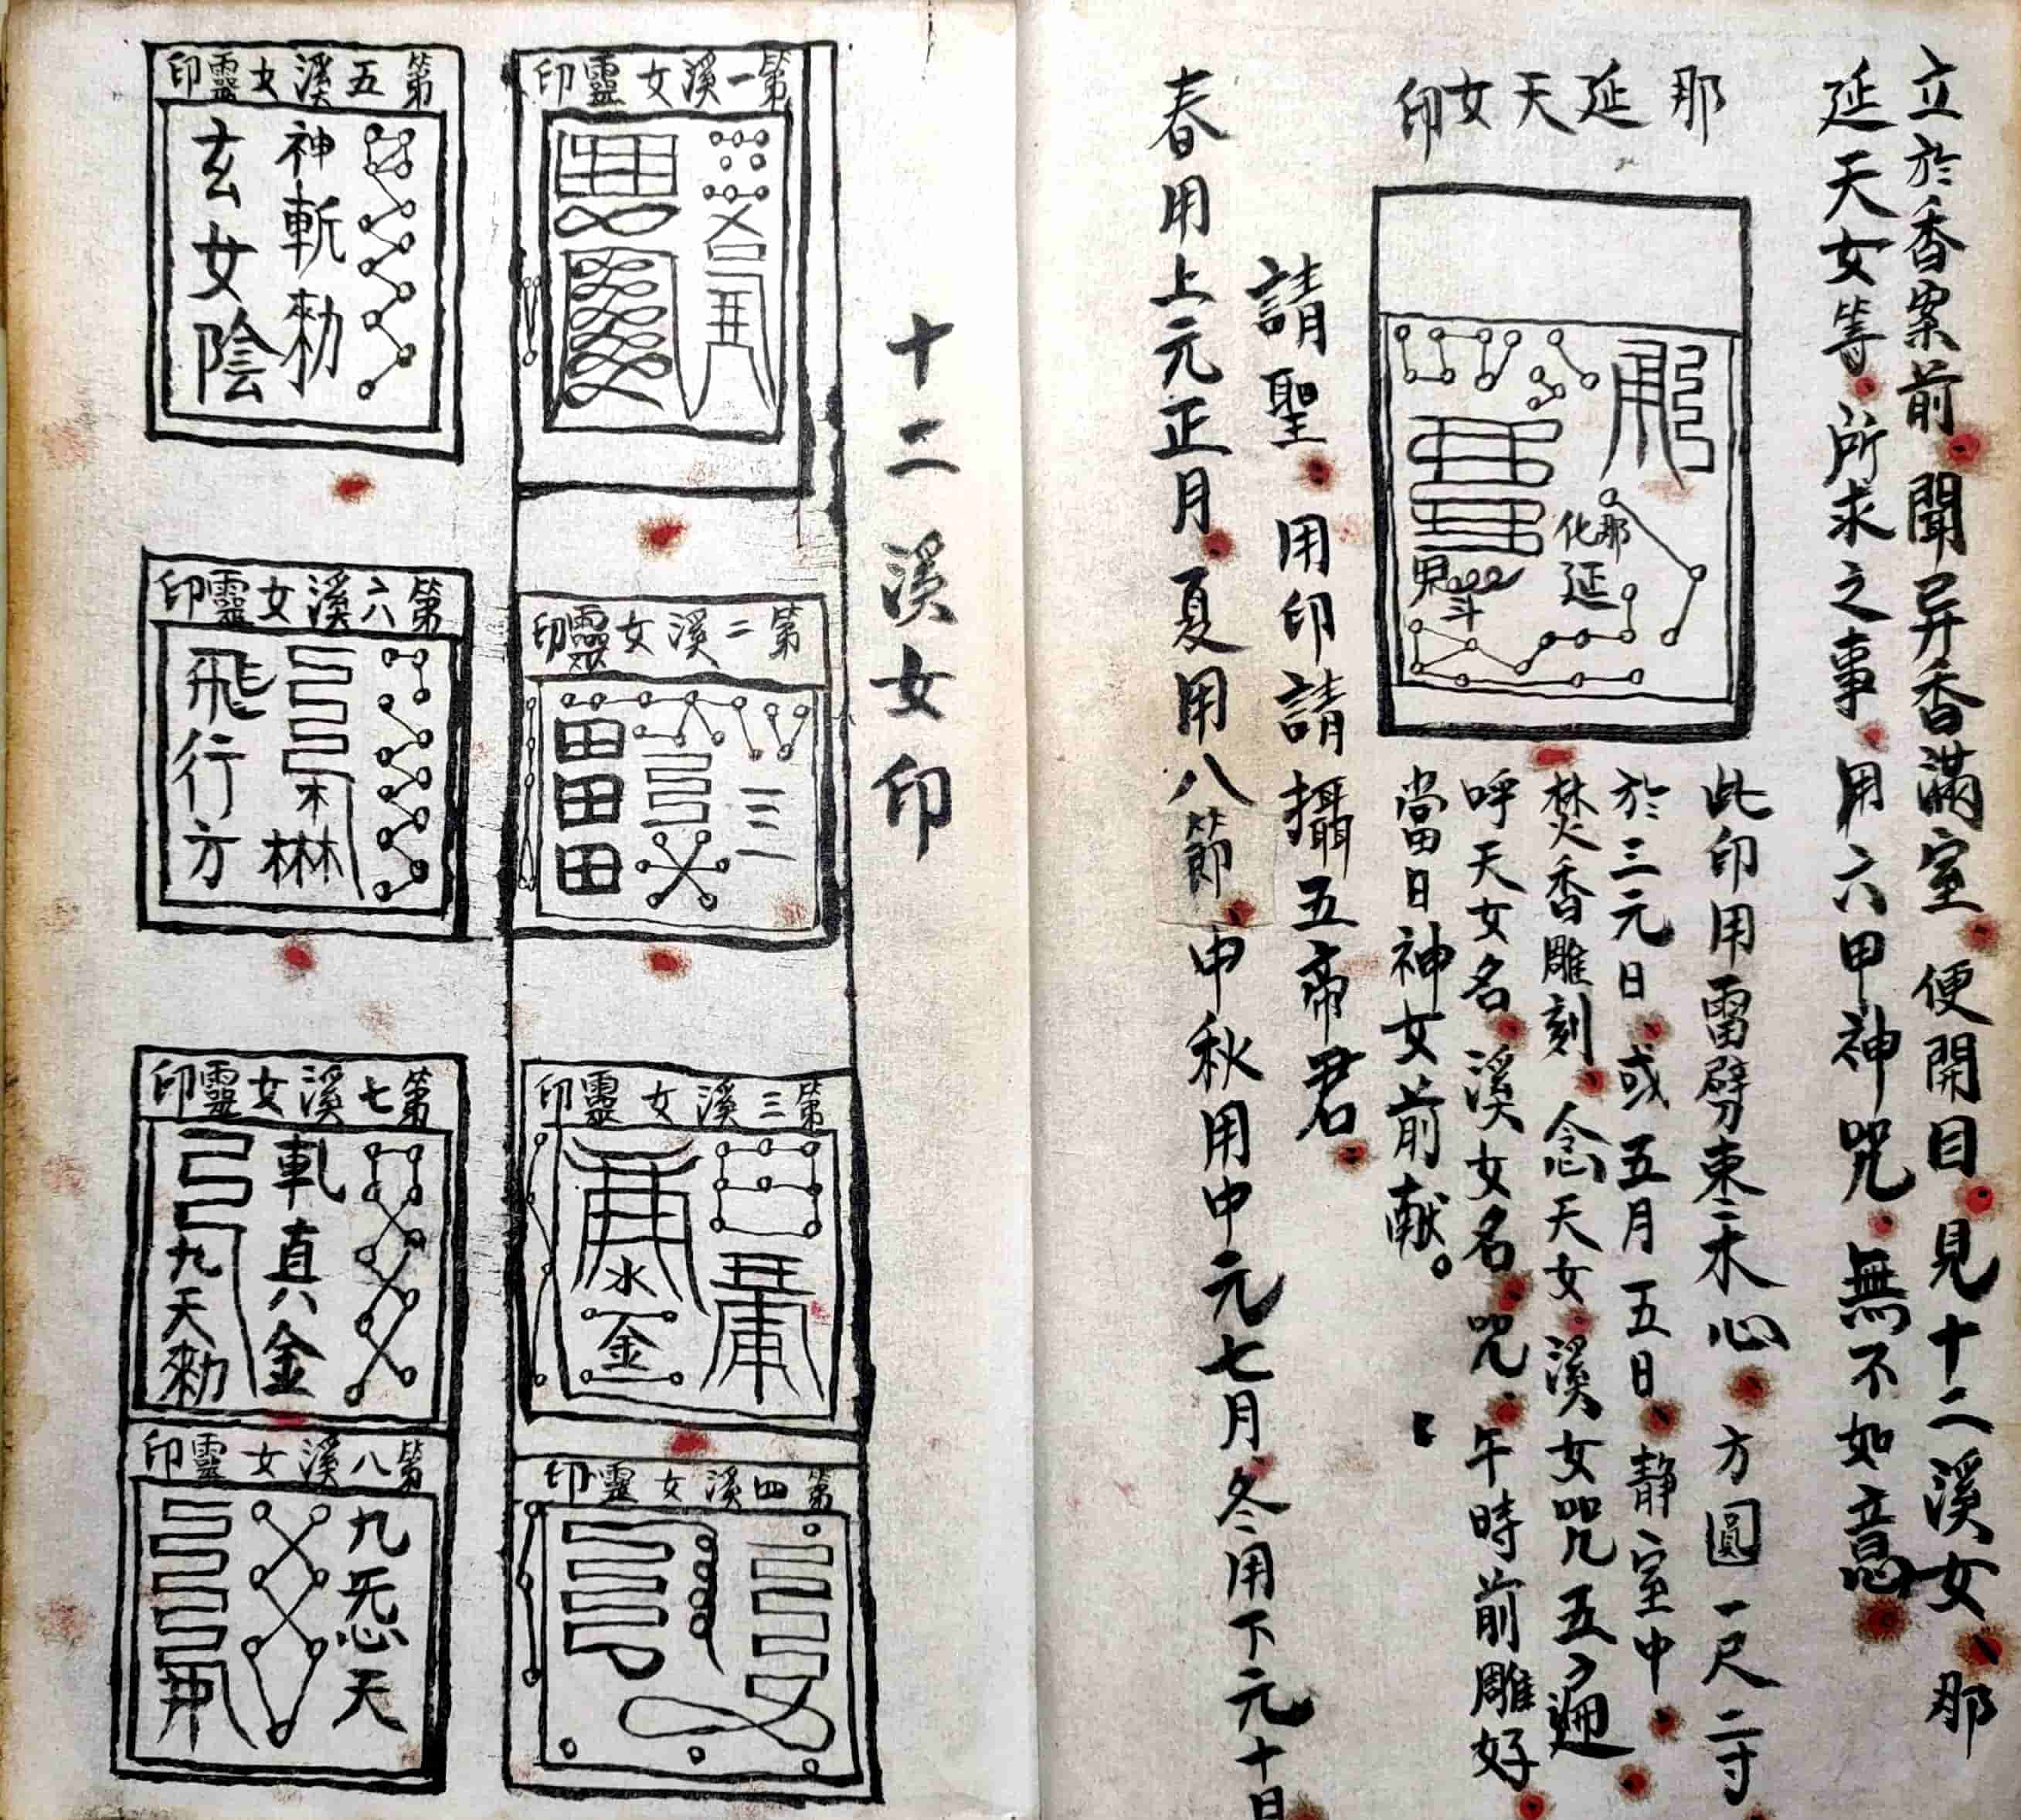 立於香案前聞异香滿室便開目見十二溪女那
延天女等所求之事用六甲神咒無不如意
那延天女印
那延化
此印用雷劈東二木心方圓一尺二寸
於三元日或五月五日静室中
焚香雕刻念天女溪女咒五遍
呼天女名溪女名咒午時前雕好
當日神女前献。
請聖用印請攝五帝君
春用上元正月夏用八節中秋用中元七月冬用下元十日
十二溪女印
第一溪女靈印
第二溪女靈印
三
田田田
第三溪女靈印
水
金
第四溪女靈印
第五溪女靈印
神斬勑
玄女陰
第六溪女靈印
飛行方
第七溪女靈印
真八金
九天勑
第八溪女靈印
九炁天